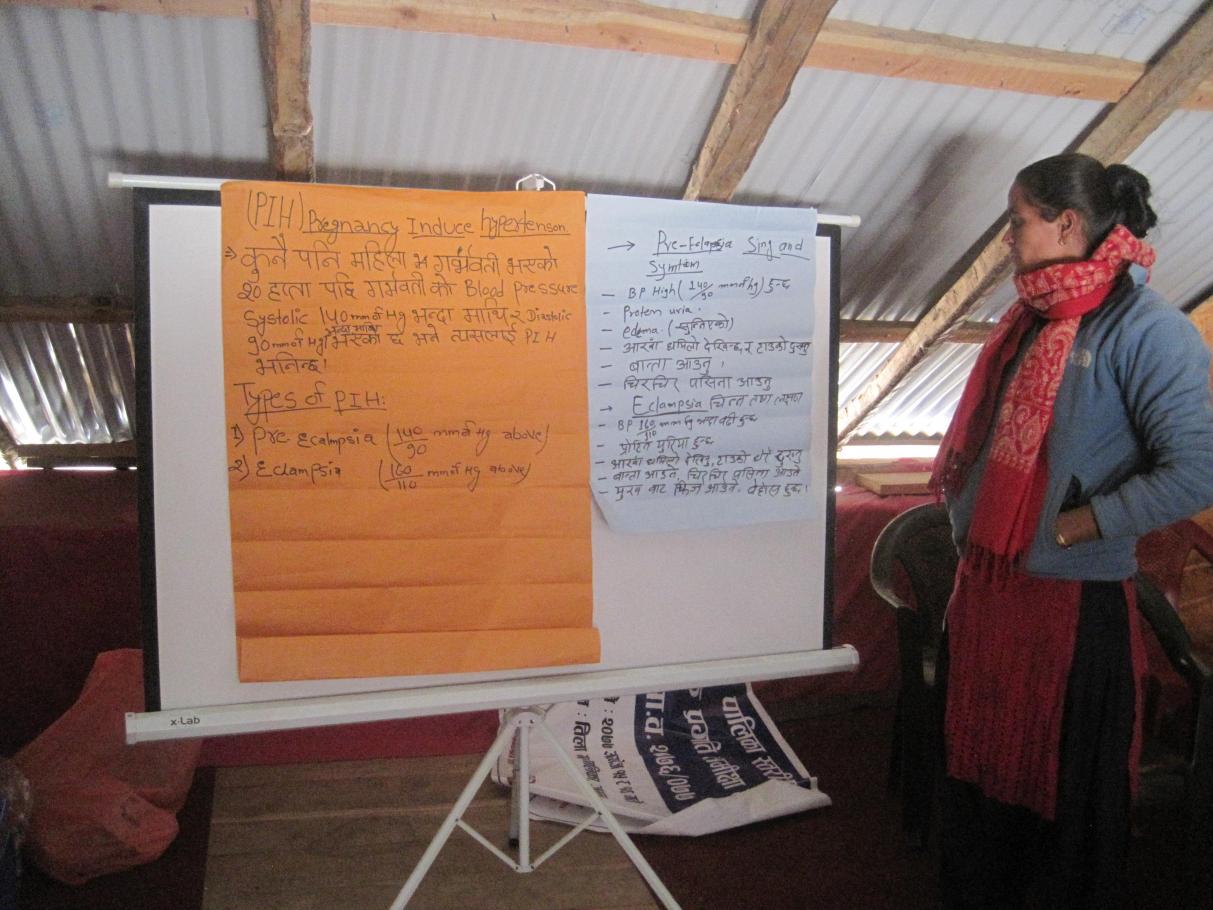 (PIH) Pregnancy Induce hypertenson
⇒ कुनै पनि महिला म गर्भवती भएको
२० हप्ता पछि गर्भवती को Blood Pressure
Systolic 140 mm of Hg भन्दा माथि र Diastolic
90 mm of Hg भन्दा माथि भएको छ भने त्यसलाई PIH
भनिन्छ।
Types of PIH:
1) Pre-Ecalmpsia (140/90 mm of Hg above)
2) Eclampsia (160/110 mm of Hg above)
→ Pre-Eclampsia Sing and
Symtom
- BP High (140/90 mm of hg) हुन्छ
- Protein uria.
- edema. (सुन्निएको)
- आखा धमिलो देखिन्छ, र टाउको दुख्नु
- बान्ता आउनु ।
- चिटचिट पसिना आउनु
→ Eclampsia चिन्ह तथा लक्षण
- BP 160/110 mm of hg भन्दा बढी हुन्छ
- प्रोटिन युरिया हुन्छ
- आखा धमिलो टाउको दुख्नु
- बान्ता आउने, चिटचिट पसिना आउने
- मुख बाट फिज आउने. बेहोस हुन्छ।
x-Lab
पालिका स्तरी
प्रगति समिक्षा
आ.व. २०७६/०७७
: २०७७
: तिला